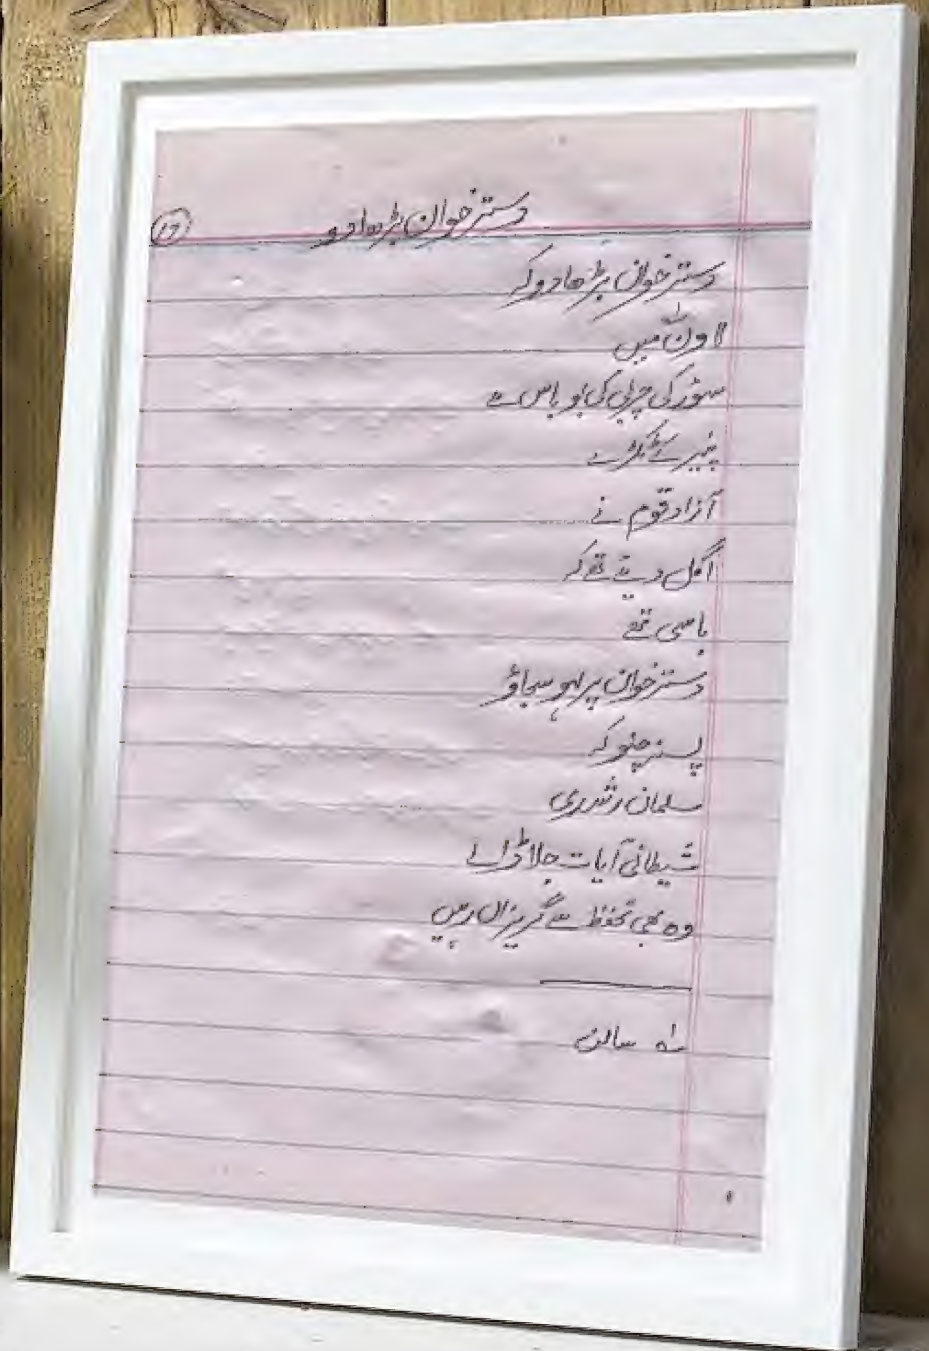 دسترخوان بڑھا دو
(17)
دسترخوان بڑھا دو کہ
لاون؁ میں
سؤر کی چربی کی بو باس ہے
پنیر کے ٹکڑے
آزاد قوم نے
اگل دیئے تھے کہ
باسی تھے
دسترخوان پر لہو سجاؤ
پستر چنو کہ
سلمان رشدی
شیطانی آیات جلا ڈالے
وہ بھی تحفظ سے گریزاں رہیں
؁ سالن